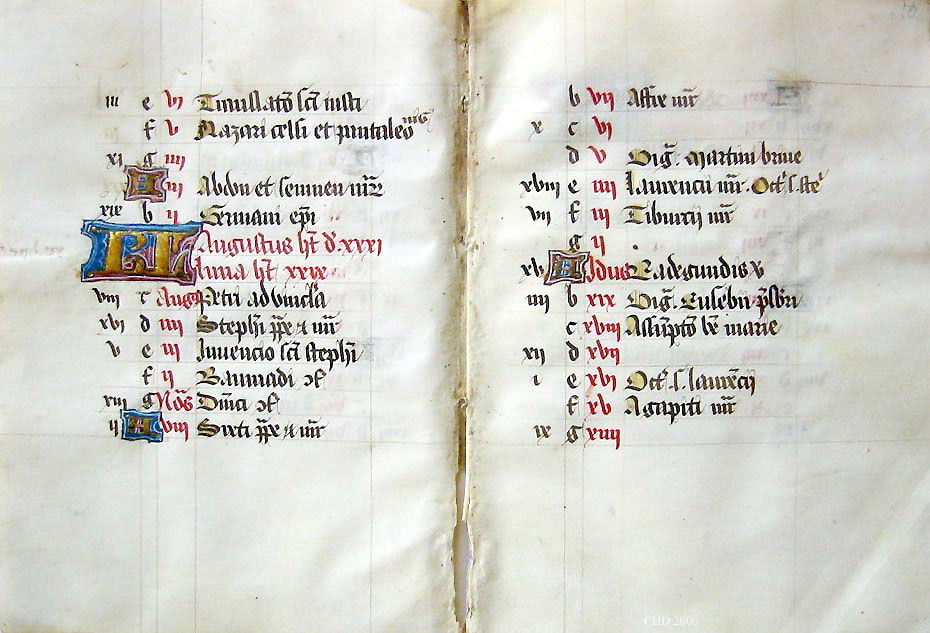 iii e vi
f v Nazarii celsi et pantaleo
xi g iiii
A iii Abdon et sennen mr
xix b ii Germani epi
KL Augustus ht d. xxxi
luna ht xxix
viii c Aug Petri ad vincla
xvi d iiii Stephi ppe & mr
v e iii Invencio sci stephi
f ii
xiii g Nos Dinici
ii A viii Sixti ppe & mr
b vii Affre mr
x c vi
d v Vig. martini brive
xviii e iiii Laurencii mr. Oct s. ste
vii f iii Tiburcii mr
g ii
xv A Idus Radegundis v
iiii b xix Vig. Eusebii psbri
c xviii Assupto be marie
xii d xvii
i e xvi Oct s. laurecii
f xv Agapiti mr
ix g xiiii
CHD 2006